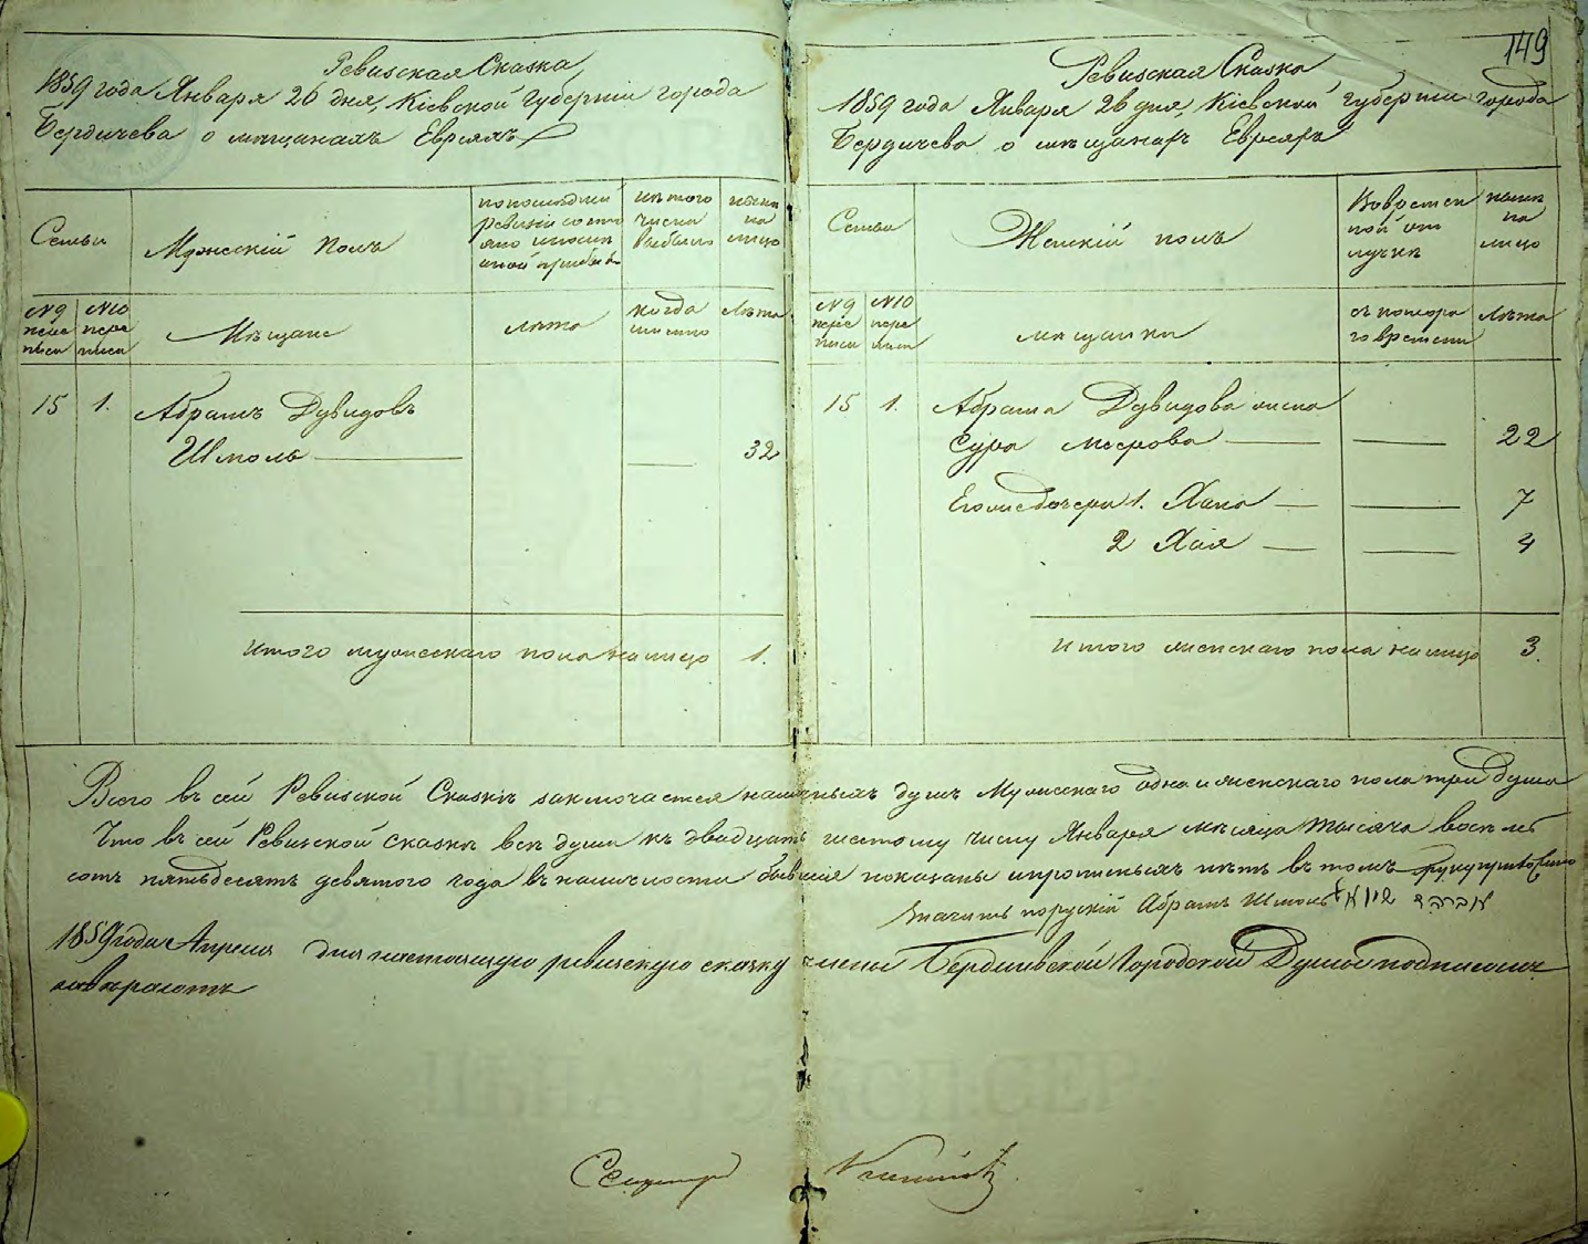 149
Ревизская Сказка
1859 года Января 26 дня, Кіевской Губерніи города
Бердичева о мещанахъ Евреяхъ
Семьи
Мужескій полъ
по последней
ревизіи состо
яло и после
оной прибыло
изъ того
числа
выбыло
ныне
на
лицо
№9
пере
писи
№10
пере
писи
Мѣщане
лѣта
когда
именно
Лѣта
15 1. Абрамъ Дувидовъ
Шмоль 32
Итого мужескаго пола на лицо 1.
Ревизская Сказка
1859 года Января 26 дня, Кіевской губерніи города
Бердичева о мѣщанахъ Евреяхъ
Семьи
Женскій полъ
Во времен
ной от
лучкѣ
ныне
на
лицо
№9
пере
писи
№10
пере
писи
мещанки
съ котора
го времени
Лѣта
15 1. Абрама Дувидова жена
Сура меерова 22
Его же дочери 1. Хана 7
2 Хая 4
Итого женскаго пола на лицо 3.
Всего въ сей Ревизской Сказкѣ заключается наличныхъ душъ Мужескаго одна и женскаго пола три души
Что въ сей Ревизской сказкѣ всѣ души къ двадцать шестому числу Января мѣсяца тысяча восемь
сотъ пятьдесятъ девятого года въ наличности бывшія показаны и прописныхъ нетъ въ томъ
значитъ поруский Абрамъ Шмоль אברהם
1859 года Апреля дня настоящую ревизскую сказку члены Бердичевской Городской Думы подписомъ
заверяютъ
Секретарь